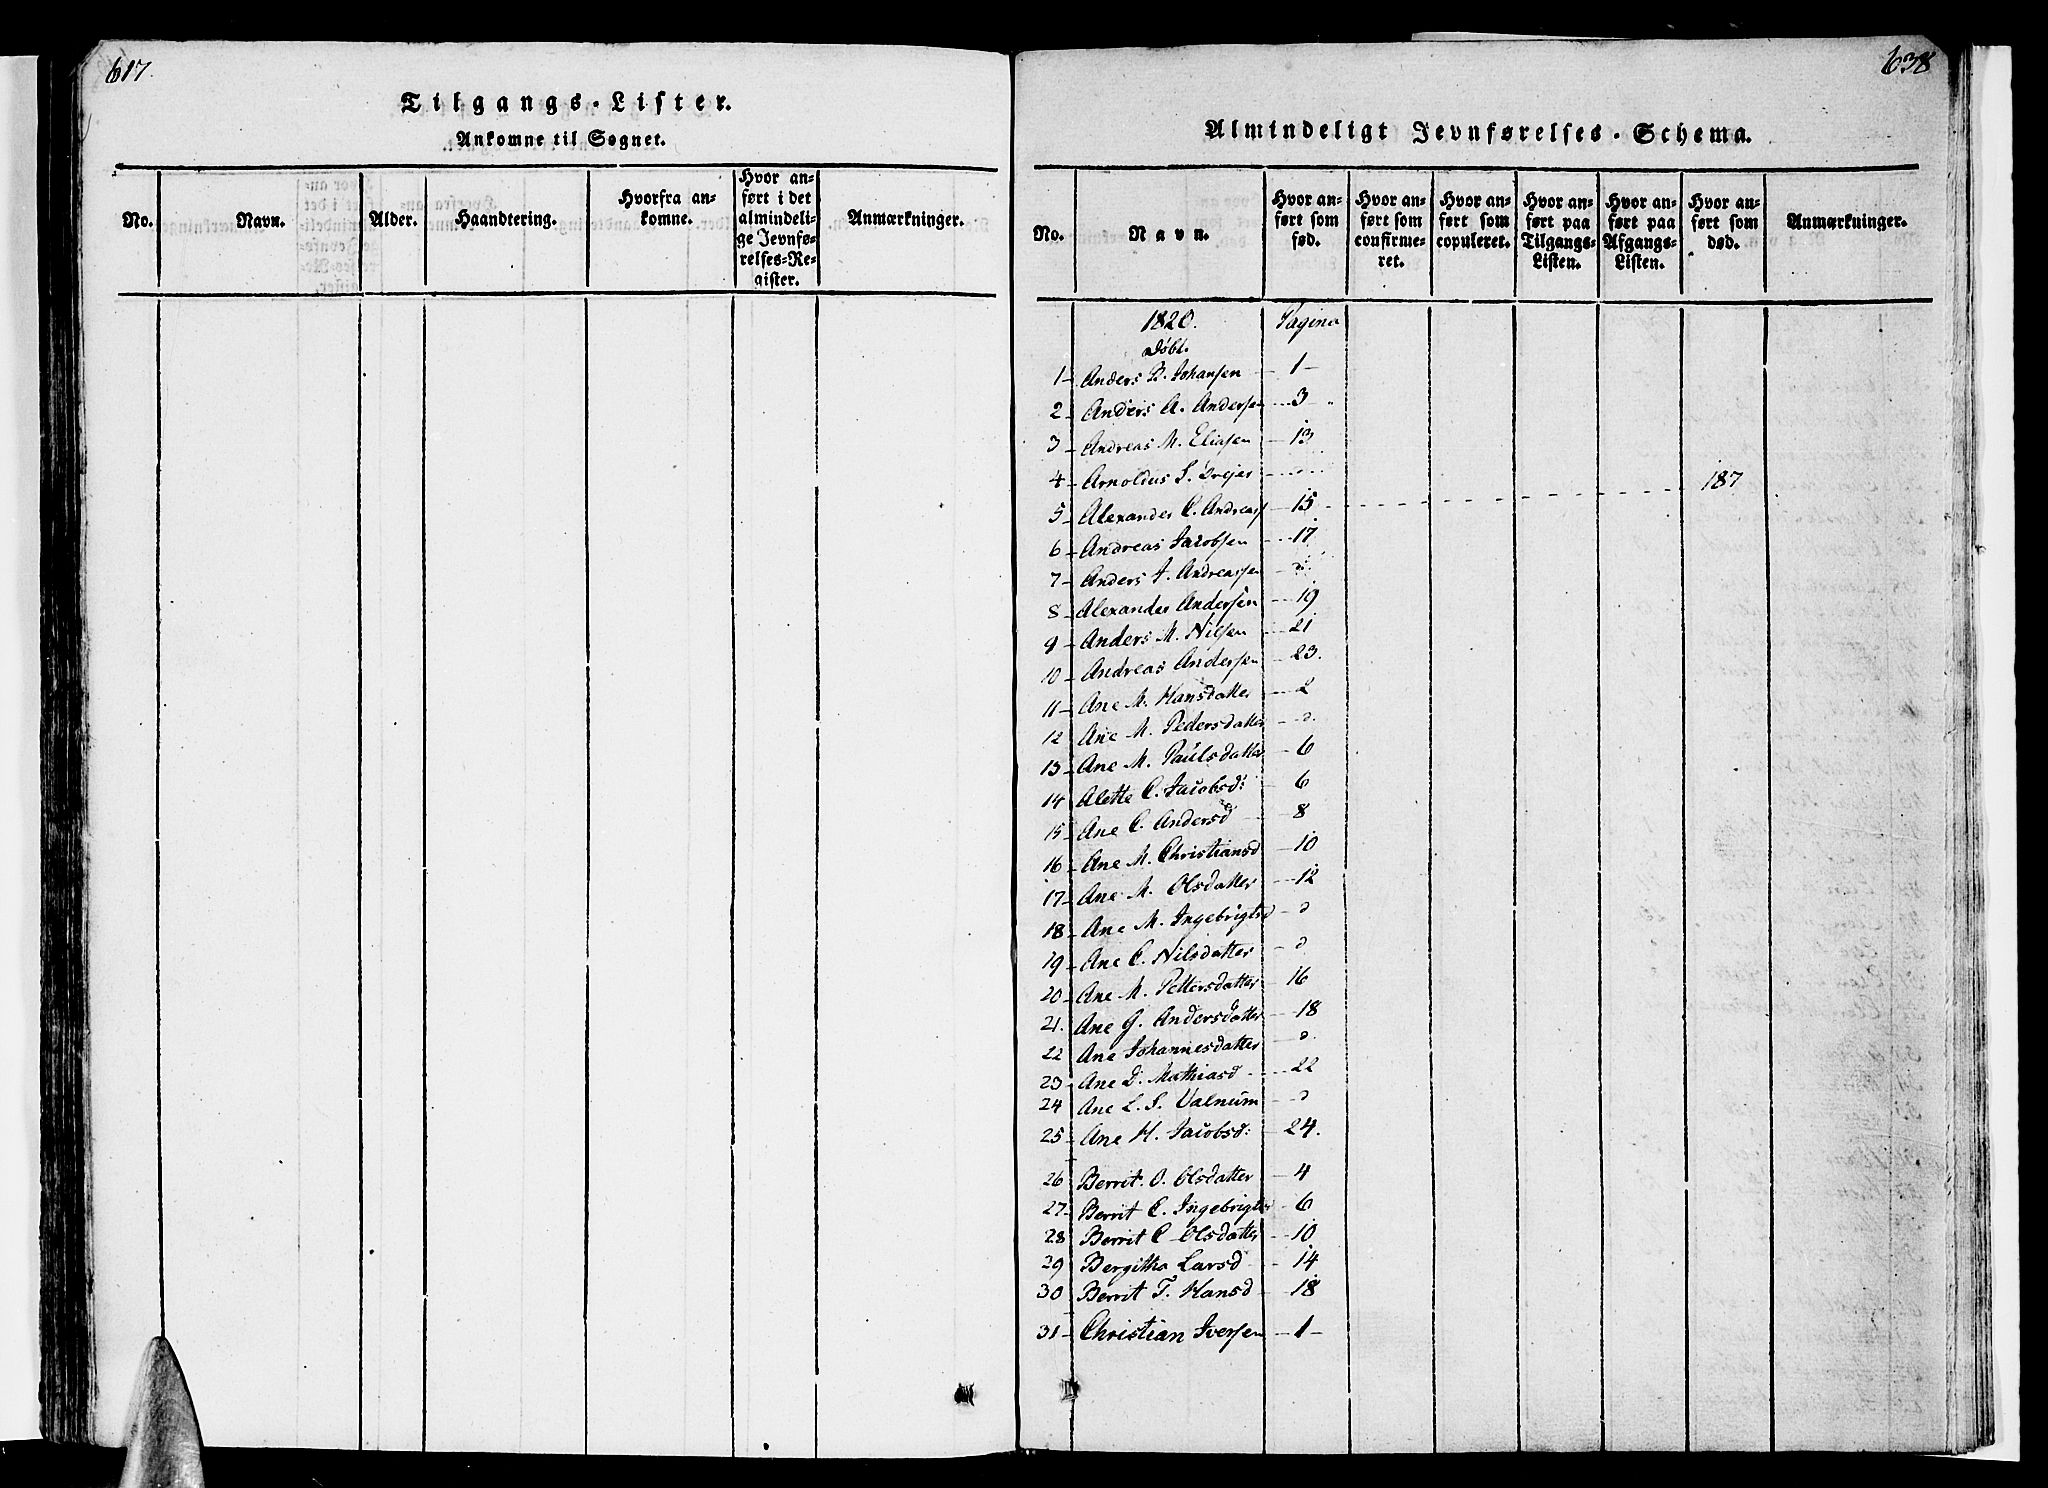 617.
Tilgangs-Lister.
Ankomne til Søgnet.
No.
Navn.
Alder.
Haandtering.
Hvorfra an=
komne.
Hvor an=
ført i det
almindeli=
ge Jevnfø=
relses=Re=
gister.
Anmærkninger.
638
Almindeligt Jevnførelses-Schema.
No.
Navn.
Hvor an=
ført som
fød.
Hvor an=
ført som
confirme=
ret.
Hvor an=
ført som
copuleret.
Hvor an=
ført paa
Tilgangs=
Listen.
Hvor an=
ført paa
Afgangs=
Listen.
Hvor an=
ført som
død.
Anmærkninger.
1820. Pagina
Døbt.
1 Anders B. Johansen 1
2 Anders A. Andersen 3
3 Andreas M. Eliasen 13
4 Arnoldus S.
5 Alexander C. Andreas 15 187
6 Andreas Jacobsen 17
7 Anders J. Andreassen d
8 Alexander Andersen 19
9 Anders M. Nilsen 21
10 Andreas Andersen 23.
11 Ane M. Hansdatter 2
12 Ane M. Pedersdatter d.
13 Ane M. Paulsdatter 6
14 Alette C. Jacobsd: 6
15 Ane C. Andersd 8
16 Ane M. Christiansd 10
17 Ane M. Olsdatter 12
18 Ane M. Ingebrigtsd d
19 Ane C. Nilsdatter d
20 Ane M. Pettersdatter 16
21. Ane G. Andersdatter 18
22 Ane Johannesdatter d.
23 Ane D. Mathiasd 22
24 Ane L. S. Valnum d
25 Ane H. Jacobsd: 24.
26 Berrit O. Olsdatter 4
27 Berrit C. Ingebrigtsd 6
28 Berrit C Olsdatter 10
29 Bergitha Larsd 14
30 Berrit T. Hansd 18
31 Christian Iversen 1